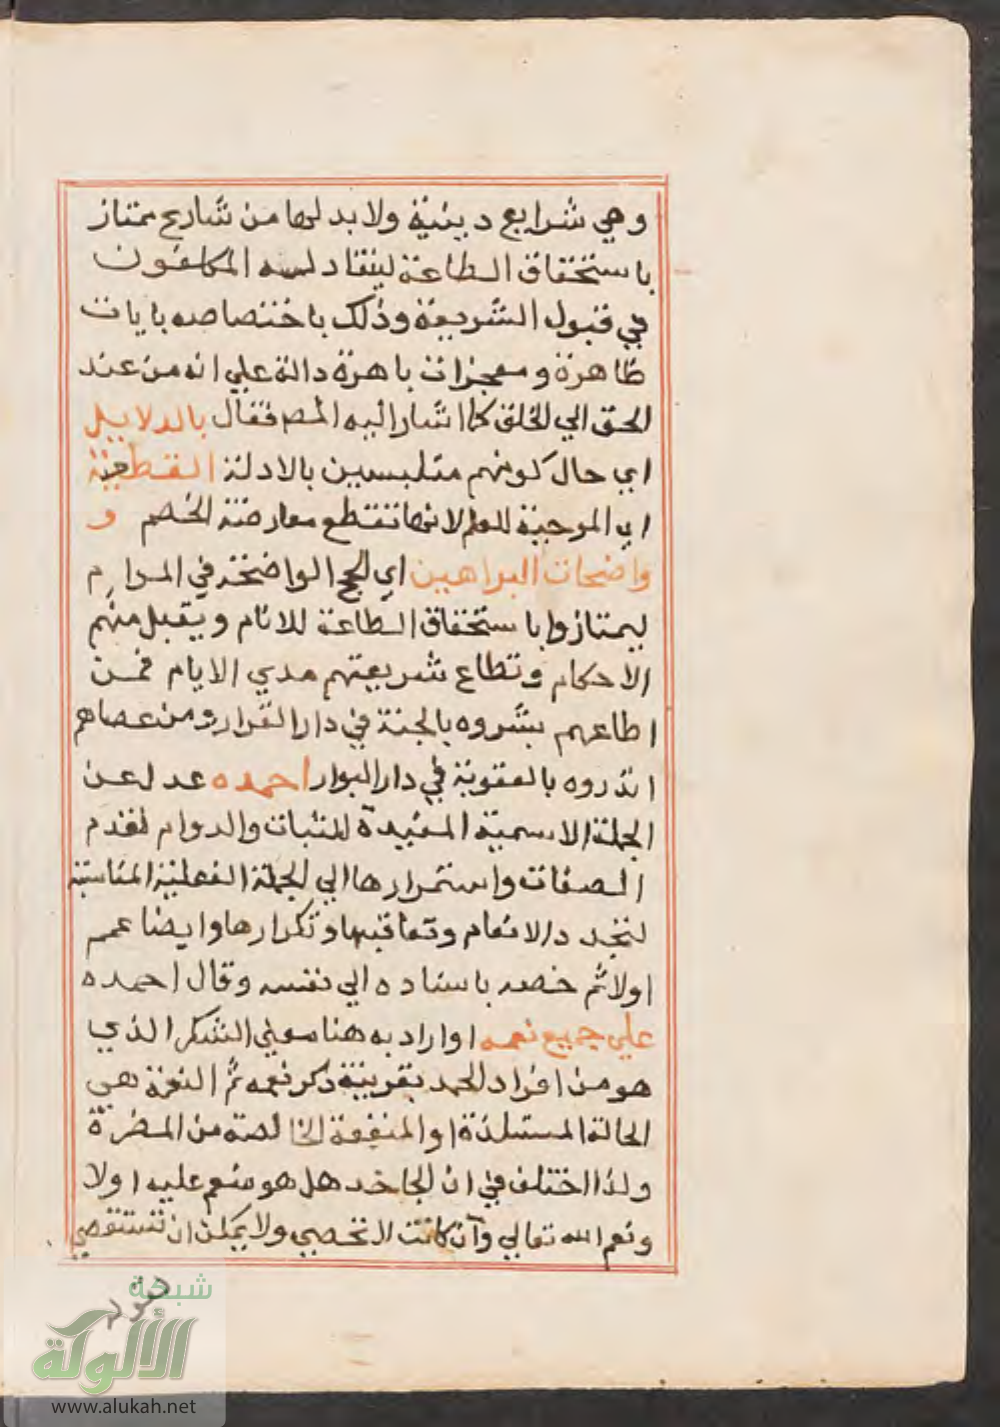 وهي شرايع دينية ولا بد لها من شارع ممتاز
باستحقاق الطاعة لينقاد له المكلفون
في قبول الشريعة وذلك باختصاصه بايات
ظاهرة ومعجزات باهرة دالة علي انه من عند
الحق الي الخلق كما اشار اليه المصـ فقال بالدلايل
اي حال كونهم متلبسين بالادلة القطعية
اي الموجبة للعلم لانها تقطع معارضة الخصم و
واضحات البراهين اي الحجج الواضحة في المرام
ليمتازوا باستحقاق الطاعة للانام ويقبل منهم
الاحكام وتطاع شريعتهم مدي الايام فمن
اطاعهم بشروه بالجنة في دار القرار ومن عصاهم
انذروه بالعقوبة في دار البوار احمده عدل عن
الجملة الاسمية المفيدة للثبات والدوام لقدم
الصفات واستمرارها الي الجملة الفعلية المناسبة
لتجدد الانعام وتعاقبها وتكرارها وايضا عمم
اولا ثم خصه باسناده الي نفسه وقال احمده
علي جميع نعمه اوارادبه هنا معني الشكر الذي
هو من افراد الحمد بقرينة ذكر نعمه ثم النعمة هي
الحالة المستلذة او المنفعة الخالصة من المضرة
ولذا اختلف في ان الجاحد هل هو منعم عليه اولا
ونعم الله تعالي وان كانت لا تحصي ولا يمكن ان تستقصي
شبكة
الألوكة
www.alukah.net